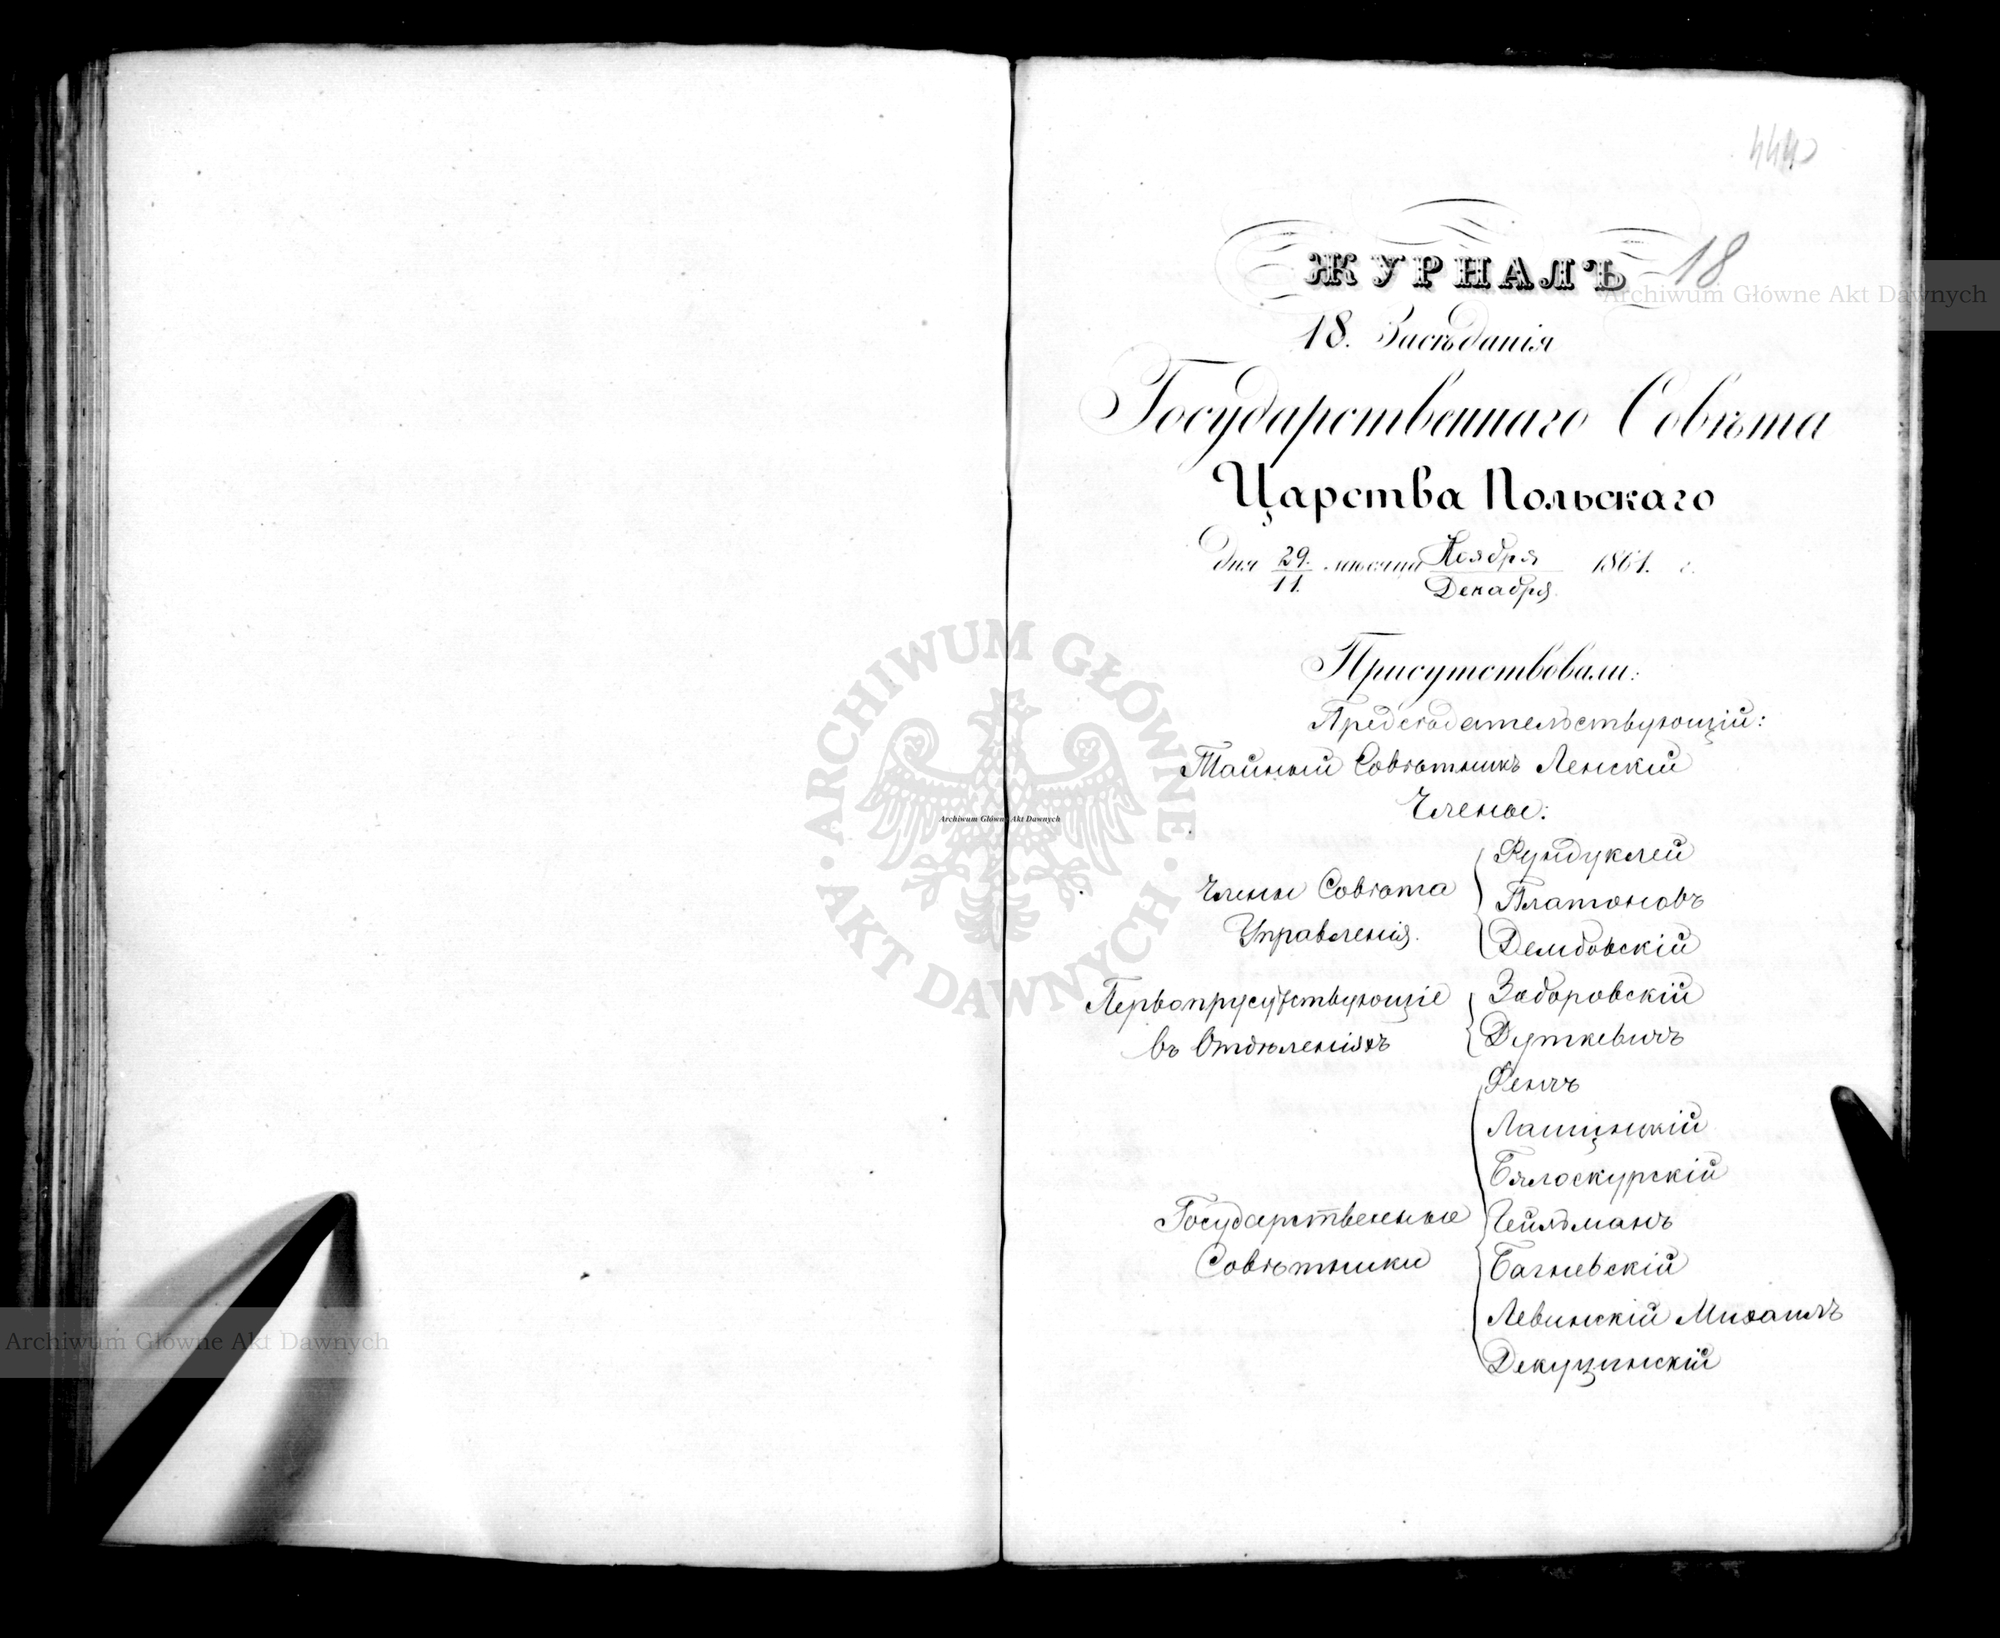 440
ЖУРНАЛЪ 18
18. Засѣданія
Государственнаго Совѣта
Царства Польскаго
дня 29./11. мѣсяца Ноября/Декабря 1861. г.
Присутствовали:
Предсѣдательствующій:
Тайный Совѣтникъ Ленскій
Члены:
Члены Совѣта Управленія.
Фундуклей
Платоновъ
Дембовскій
Первоприсутствующіе въ Отдѣленіяхъ
Заборовскій
Дуткевичъ
Государственные Совѣтники
Фенчъ
Лащинскій
Бялоскурскій
Гейльманъ
Багневскій
Левинскій Михаилъ
Декуцинскій
Archiwum Główne Akt Dawnych
ARCHIWUM GŁÓWNE AKT DAWNYCH
Archiwum Główne Akt Dawnych
Archiwum Główne Akt Dawnych